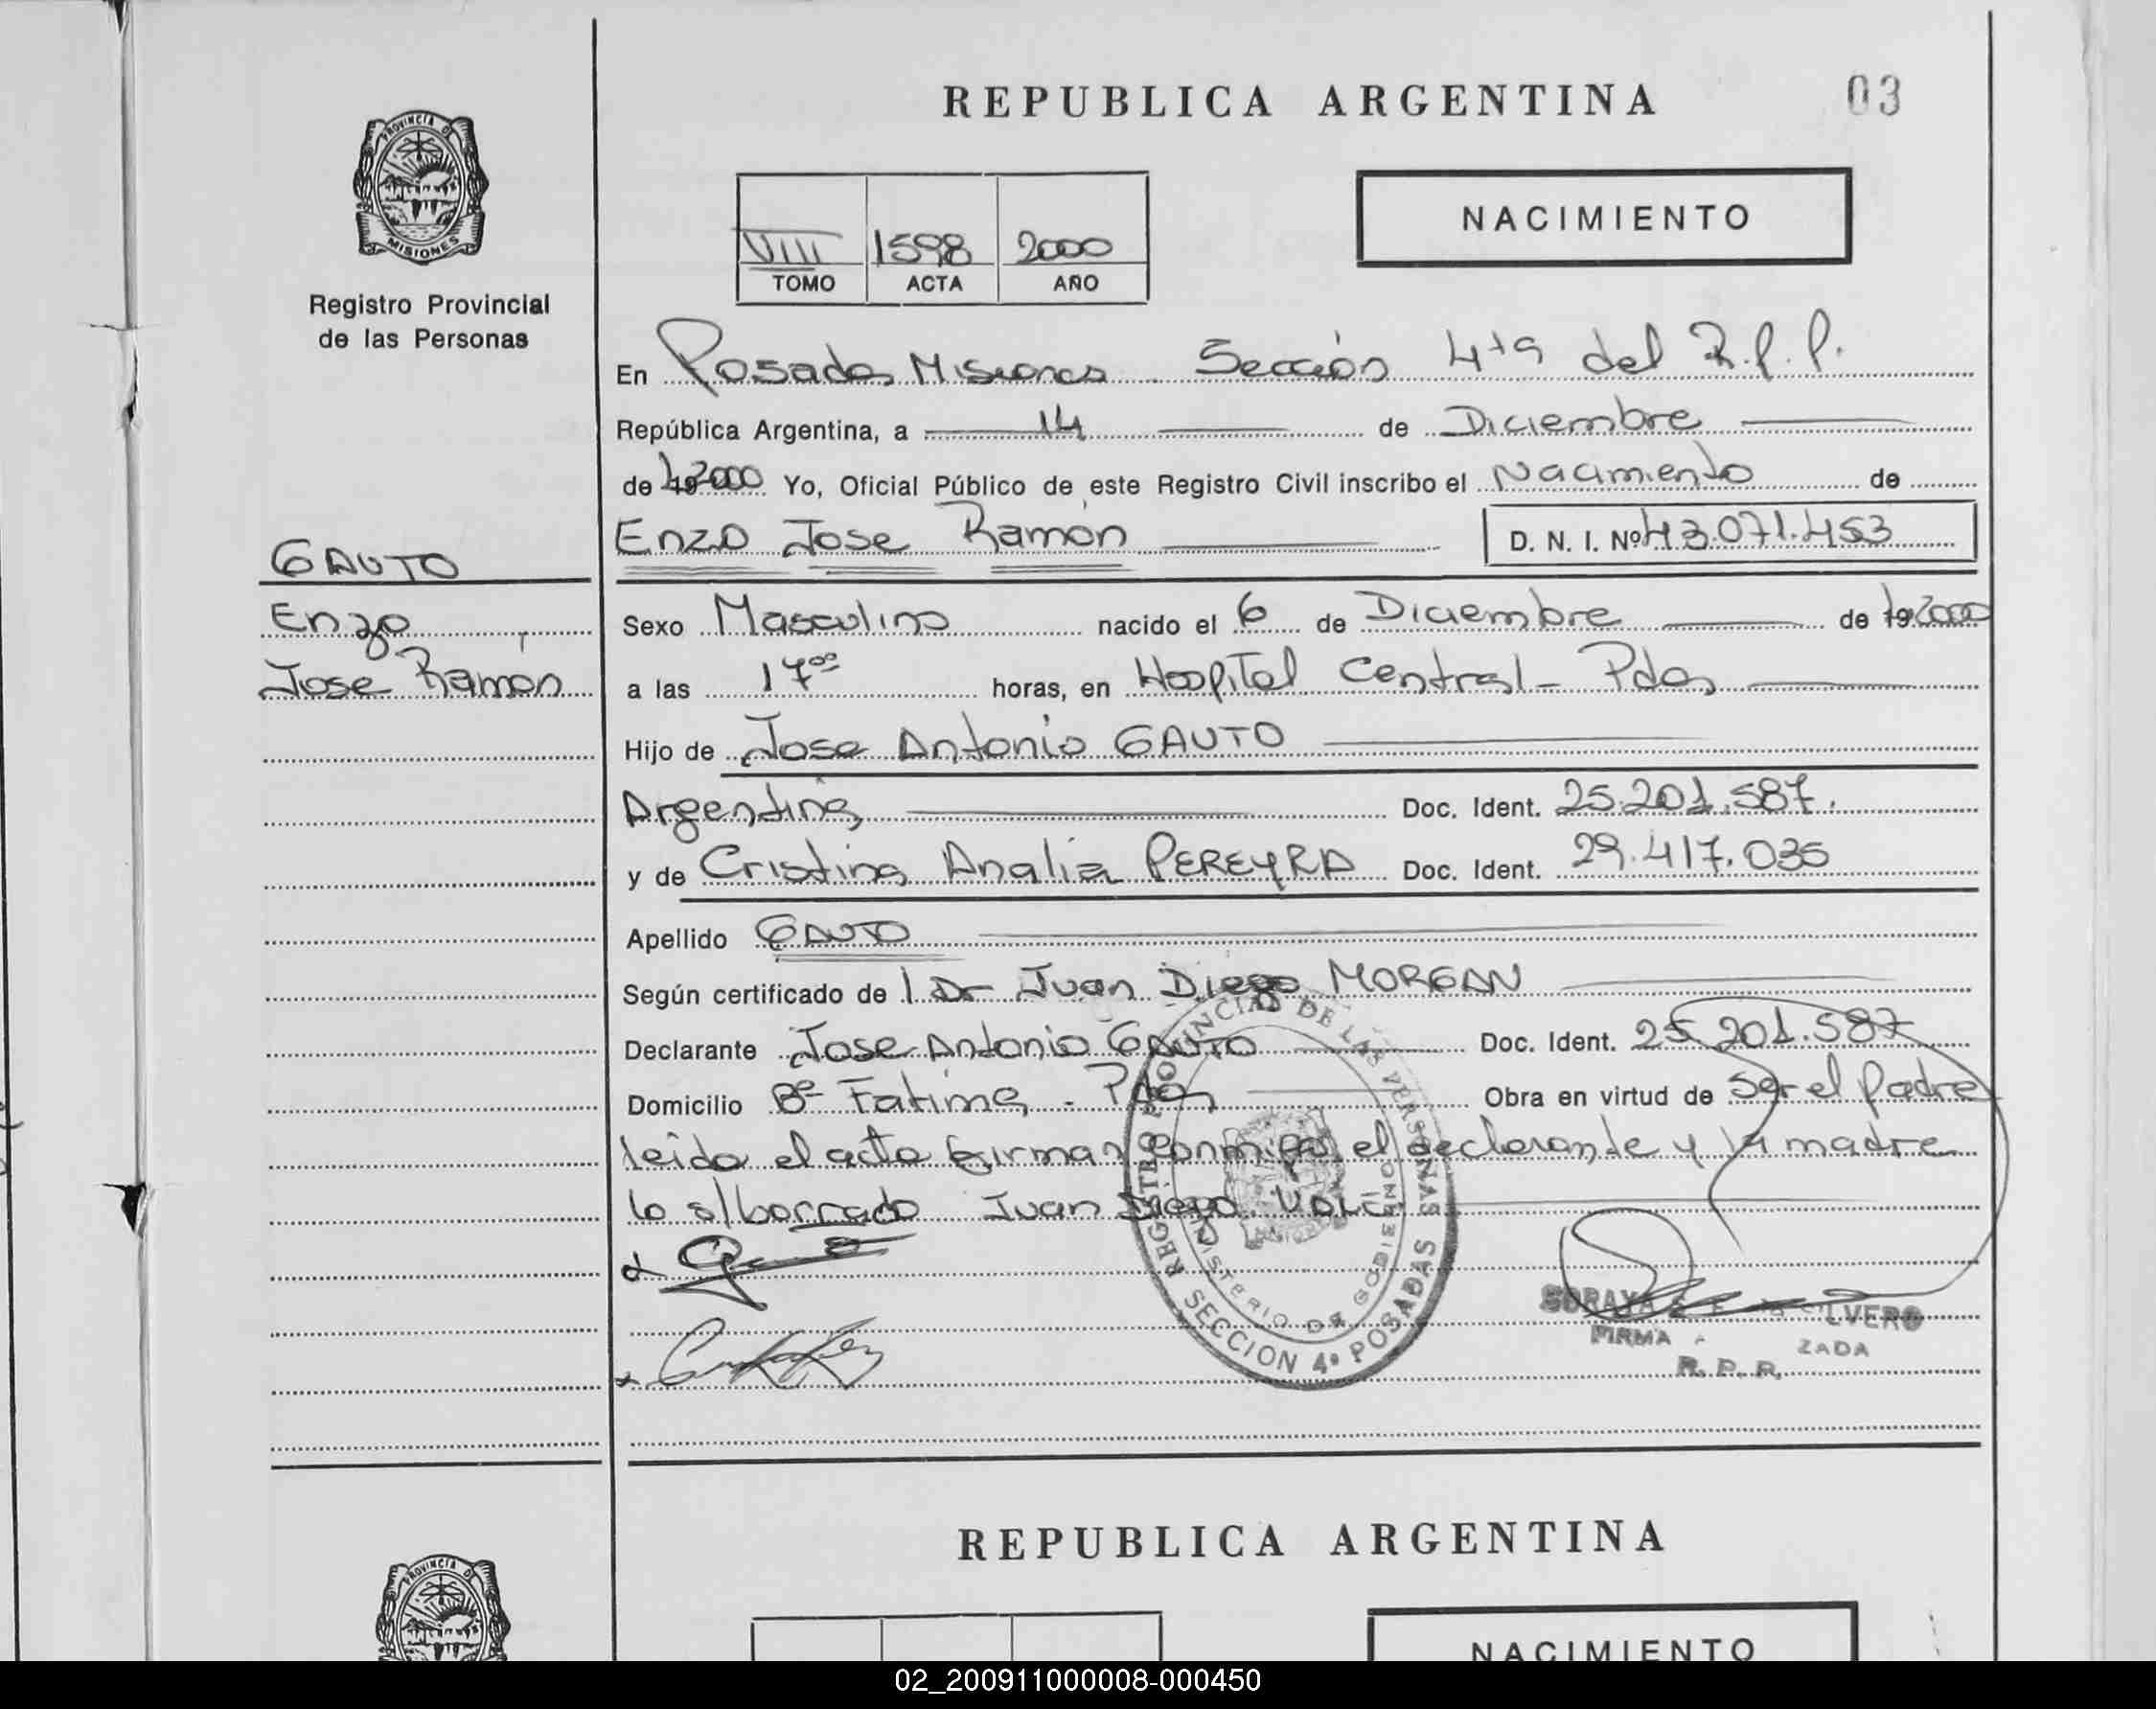 REPUBLICA ARGENTINA 03
PROVINCIA DE
MISIONES
Registro Provincial
de las Personas
NACIMIENTO
VIII 1598 2000
TOMO ACTA AÑO
En Posadas Misiones Sección 4ta del R.P.P.
República Argentina, a 14 de Diciembre
de 19 2000 Yo, Oficial Público de este Registro Civil inscribo el Nacimiento de
Enzo Jose Ramón D. N. I. Nº 43.071.453
GAUTO
Enzo
Jose Ramón
Sexo Masculino nacido el 6 de Diciembre de 19 2000
a las 17⁰⁰ horas, en Hospital Central - Pdas
Hijo de Jose Antonio GAUTO
Argentina Doc. Ident. 25.201.587.
y de Cristina Analia PEREYRA Doc. Ident. 29.417.035
Apellido GAUTO
Según certificado de l Dr Juan Diego MORGAN
Declarante Jose Antonio GAUTO Doc. Ident. 25.201.587
Domicilio Bº Fatima - Pdas Obra en virtud de ser el padre
leida el acta firman conmigo el declarante y la madre
lo s/borrado Juan Diego VALE
REGISTRO PROVINCIAL DE LAS PERSONAS
MINISTERIO DE GOBIERNO
SECCION 4º POSADAS
SORAYA LVERO
FIRMA ZADA
R. P. P.
REPUBLICA ARGENTINA
PROVINCIA D
NACIMIENTO
02_200911000008-000450